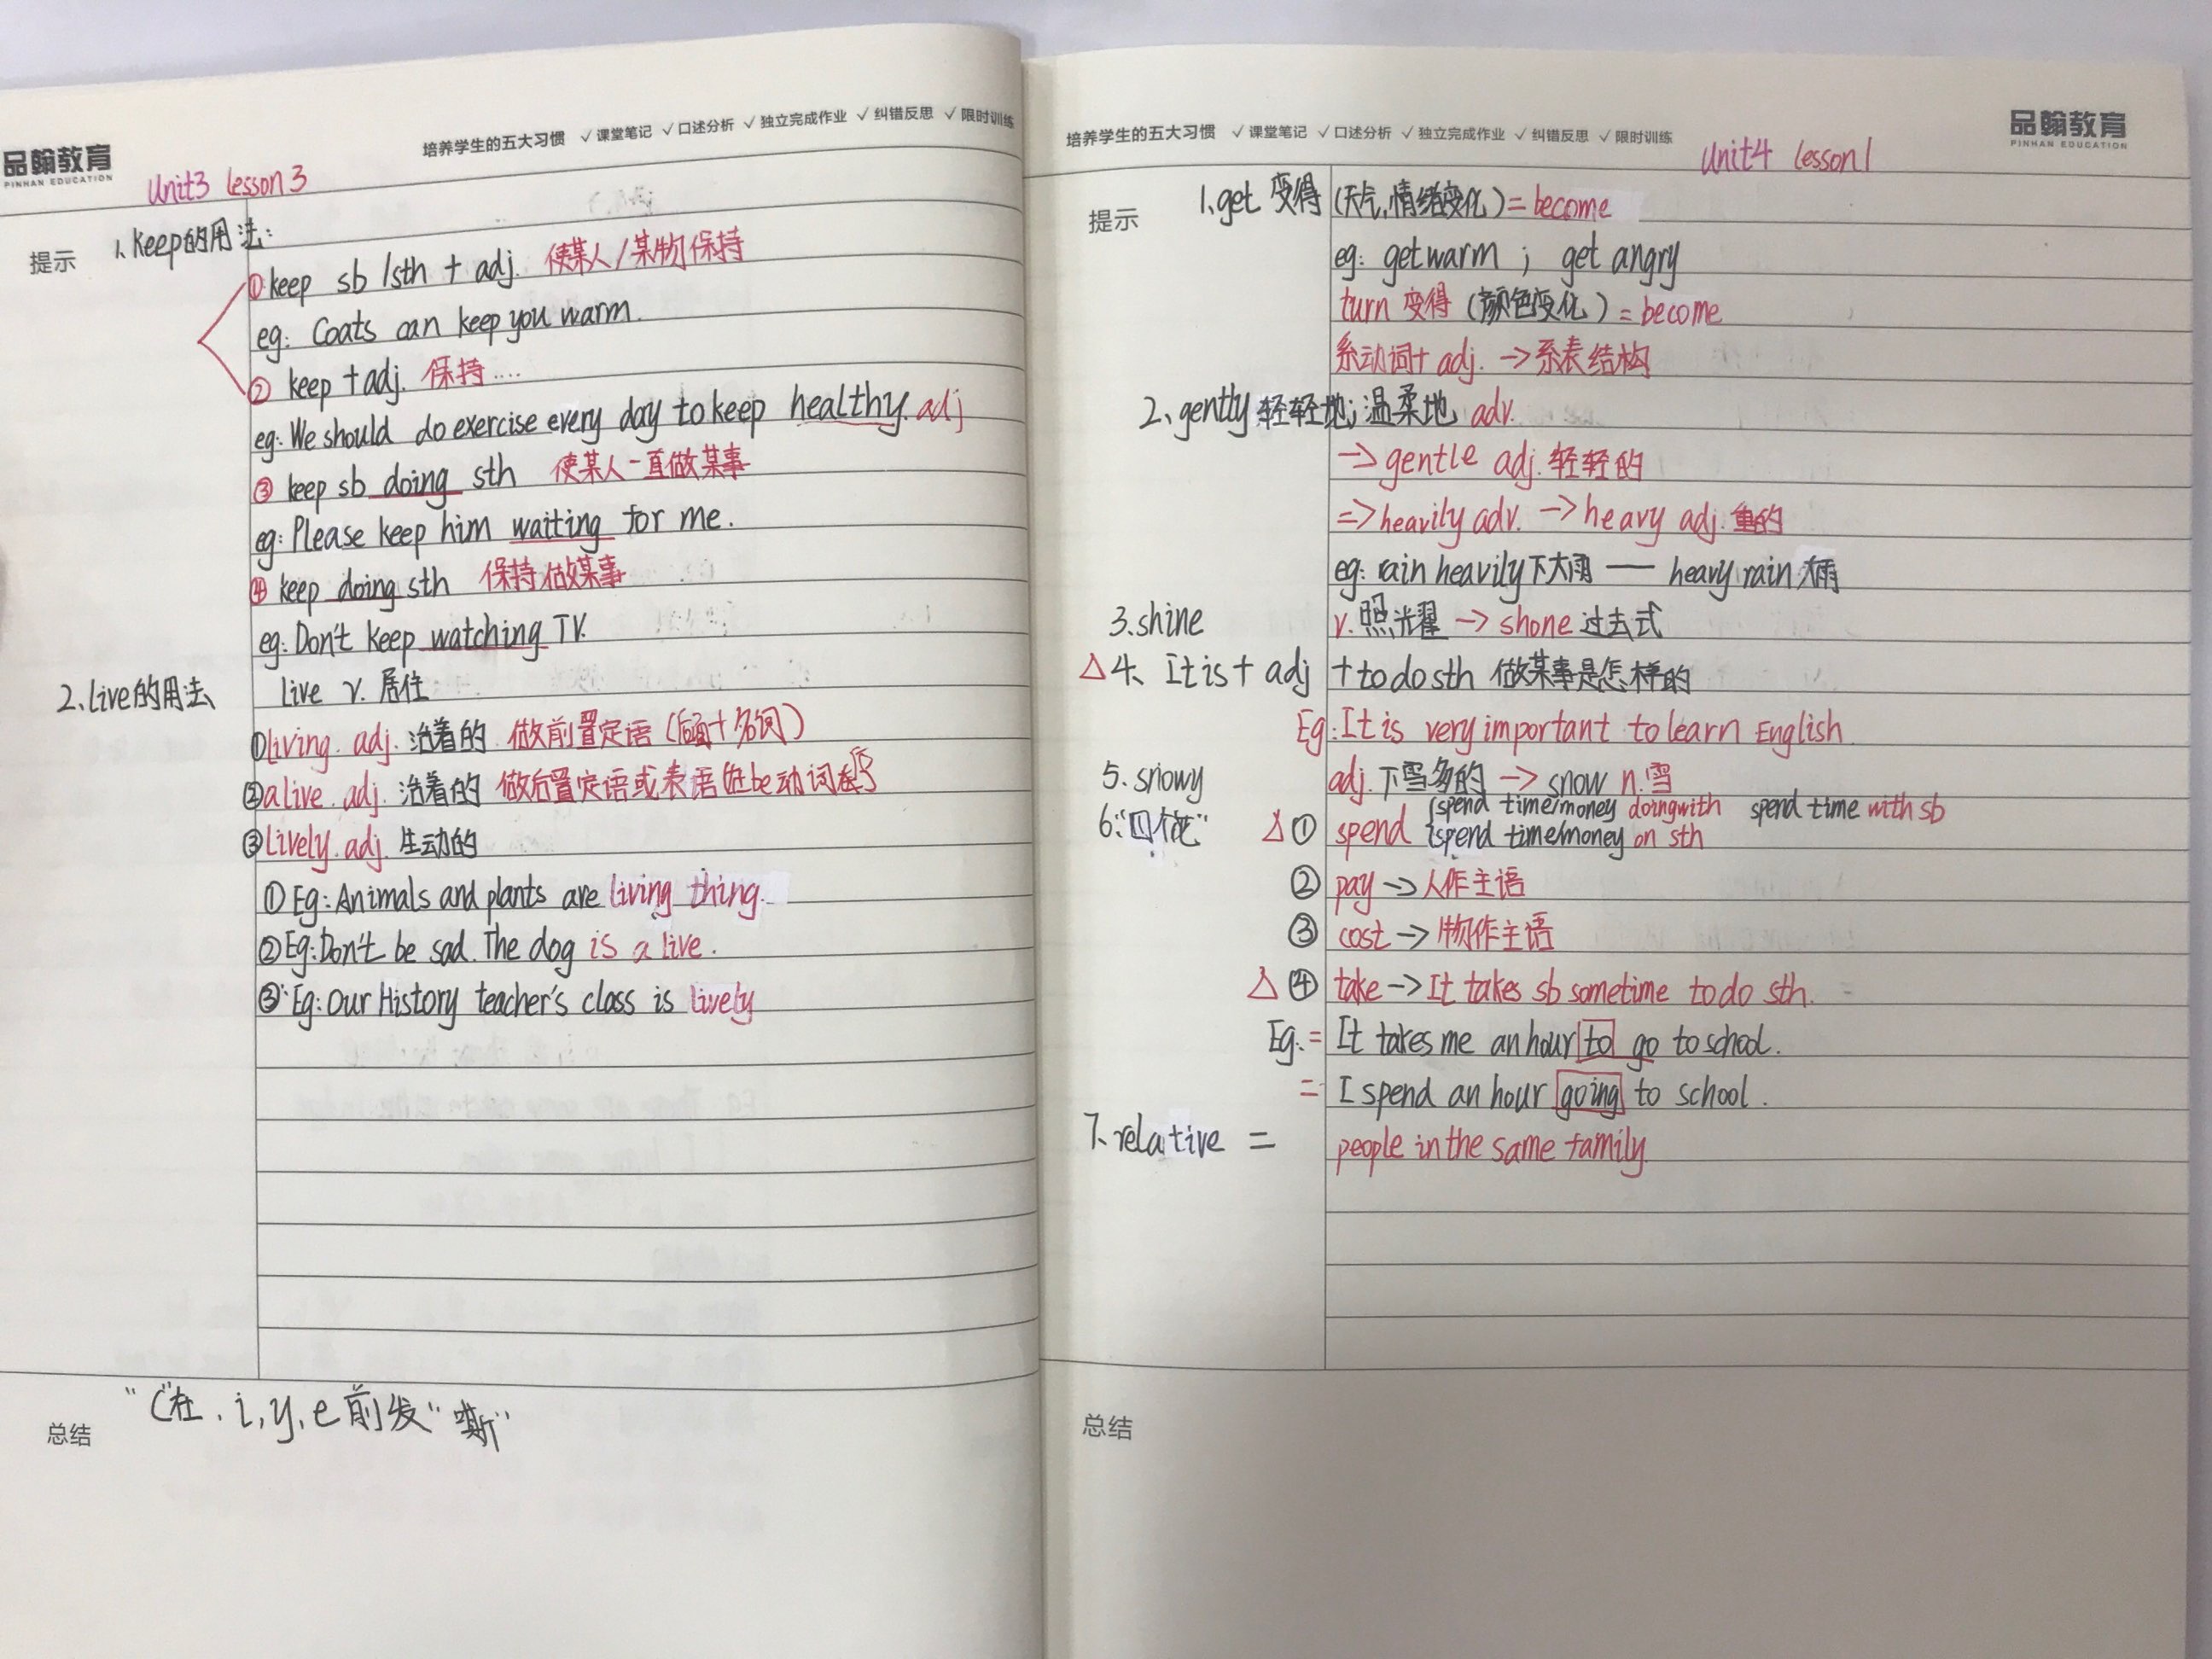 品翰教育
PINHAN EDUCATION
培养学生的五大习惯 ✓课堂笔记 ✓口述分析 ✓独立完成作业 ✓纠错反思 ✓限时训练
Unit3 Lesson3
提示
1、keep的用法:
①keep sb /sth + adj. 使某人/某物保持
eg: Coats can keep you warm.
② keep +adj. 保持....
eg: We should do exercise every day to keep healthy. adj
③ keep sb doing sth 使某人一直做某事
eg: Please keep him waiting for me.
④ keep doing sth 保持做某事
eg: Don't keep watching TV.
2、live的用法 live v. 居住
①living. adj. 活着的 做前置定语(后面+名词)
②alive. adj. 活着的 做后置定语或表语(在be动词后)
③lively. adj. 生动的
① Eg: Animals and plants are living thing.
②Eg: Don't be sad. The dog is a live.
③ Eg: Our History teacher's class is lively
总结
"C"在 . i, y, e 前发 "嘶"
培养学生的五大习惯 ✓课堂笔记 ✓口述分析 ✓独立完成作业 ✓纠错反思 ✓限时训练
品翰教育
PINHAN EDUCATION
Unit4 Lesson1
提示
1、get 变得 (天气,情绪变化) = become
eg: get warm ; get angry
turn 变得 (颜色变化) = become
系动词+ adj. -> 系表结构
2、gently 轻轻地; 温柔地 adv.
-> gentle adj. 轻轻的
=> heavily adv. -> heavy adj. 重的
eg: rain heavily下大雨 — heavy rain 大雨
3.shine v. 照光耀 -> shone 过去式
△4、It is + adj + to do sth 做某事是怎样的
Eg: It is very important to learn English.
5. snowy adj. 下雪多的 -> snow n. 雪
6."四花" △① spend {spend time/money doingwith spend time with sb
{spend time/money on sth
② pay -> 人作主语
③ cost -> 物作主语
△④ take -> It takes sb sometime to do sth.
Eg. = It takes me an hour to go to school.
= I spend an hour going to school.
7、relative = people in the same family.
总结